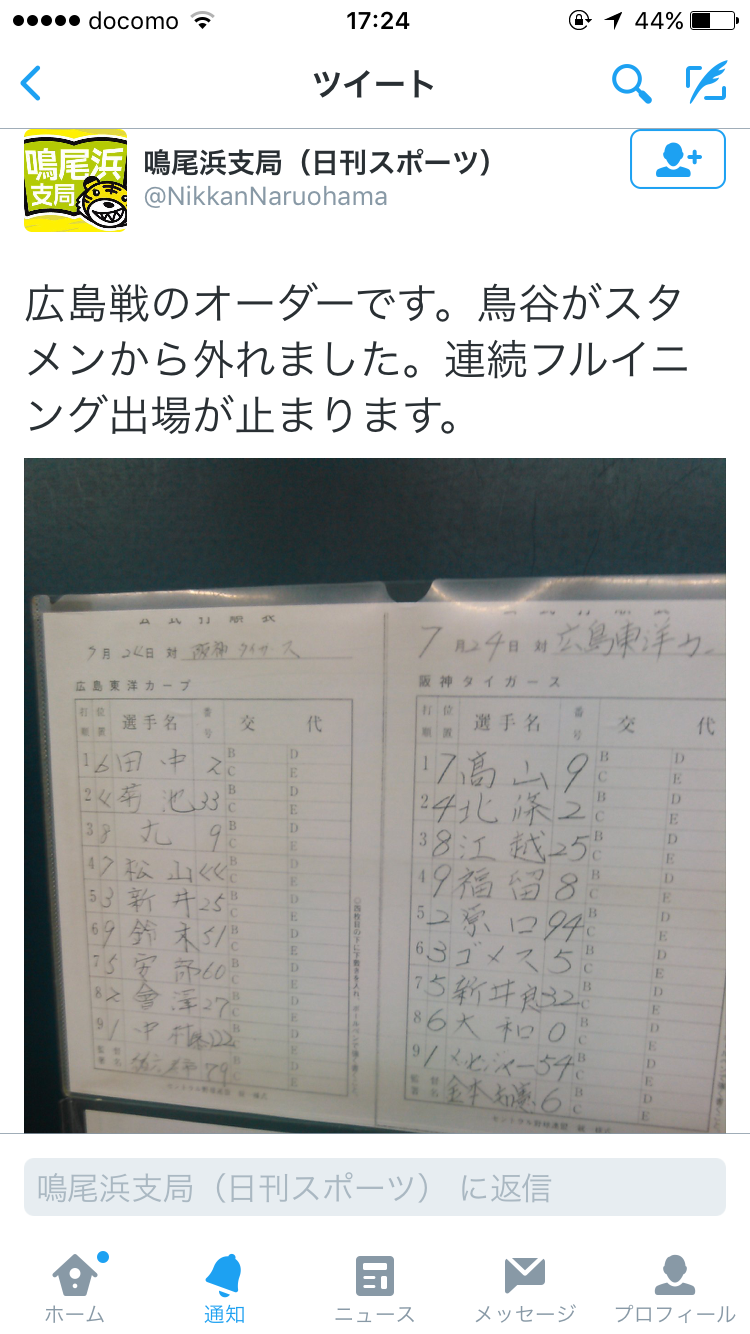 docomo 17:24 44%
ツイート
鳴尾浜
支局
鳴尾浜支局（日刊スポーツ）
@NikkanNaruohama
広島戦のオーダーです。鳥谷がスタ
メンから外れました。連続フルイニ
ング出場が止まります。
公式打順表
7月24日 対 阪神タイガース
広島東洋カープ
打順 位置 選手名 番号 交代
1 6 田中 2 B C D E
2 4 菊池 33 B C D E
3 8 丸 9 B C D E
4 7 松山 44 B C D E
5 3 新井 25 B C D E
6 9 鈴木 51 B C D E
7 5 安部 60 B C D E
8 2 會澤 27 B C D E
9 1 中村 B C D E
監督署名 79 B C D E
7月24日 対 広島東洋カー
阪神タイガース
打順 位置 選手名 番号 交代
1 7 高山 9 B C D E
2 4 北條 2 B C D E
3 8 江越 25 B C D E
4 9 福留 8 B C D E
5 2 原口 94 B C D E
6 3 ゴメス 5 B C D E
7 5 新井良 32 B C D E
8 6 大和 0 B C D E
9 1 メッセンジャー 54 B C D E
監督署名 金本知憲 6 B C D E
鳴尾浜支局（日刊スポーツ） に返信
ホーム 通知 ニュース メッセージ プロフィール